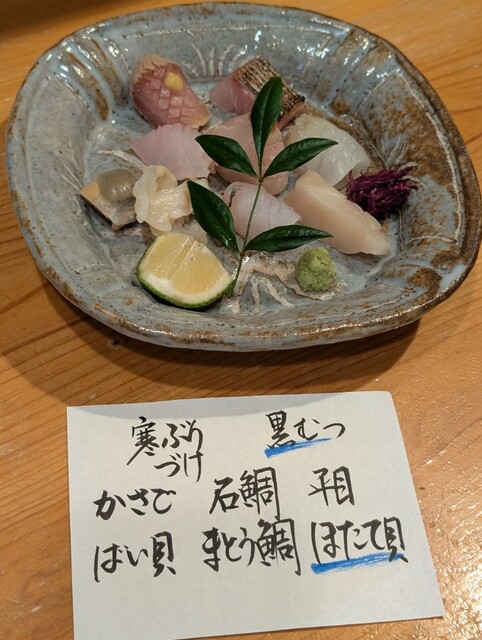 寒ぶり 黒むつ
づけ
かさご 石鯛 平目
ばい貝 まとう鯛 ほたて貝